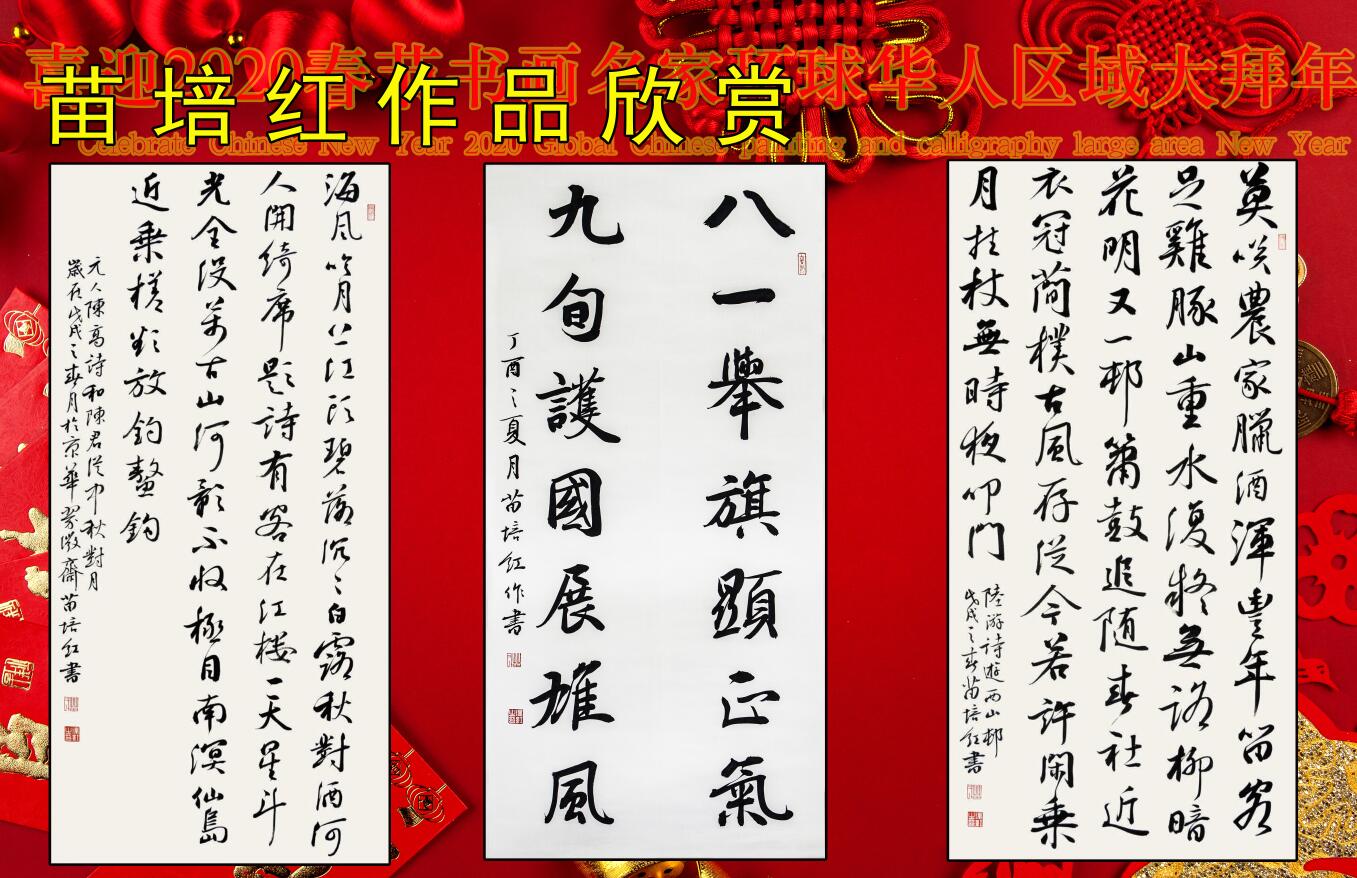 喜迎2020春节书画名家环球华人区域大拜年
苗培红作品欣赏
Celebrate Chinese New Year 2020 Global Chinese painting and calligraphy large area New Year
海風吹月上江頭碧落沉沉白露秋對酒何
人開綺席題詩有客在江樓一天星斗
光全没萬古山河影不收極目南溟仙島
近乘槎欲放釣鰲鈎
元人陳高詩和陳君從中秋對月
歲在戊戌之春月於京華翠微齋苗培红書
八一舉旗顯正氣
九旬護國展雄風
丁酉之夏月苗培红作書
莫笑農家臘酒渾豐年留客
足雞豚山重水復疑無路柳暗
花明又一邨簫鼓追随春社近
衣冠簡樸古風存從今若許閑乘
月拄杖無時夜叩門
陸游詩遊西山邨
戊戌之春苗培红書